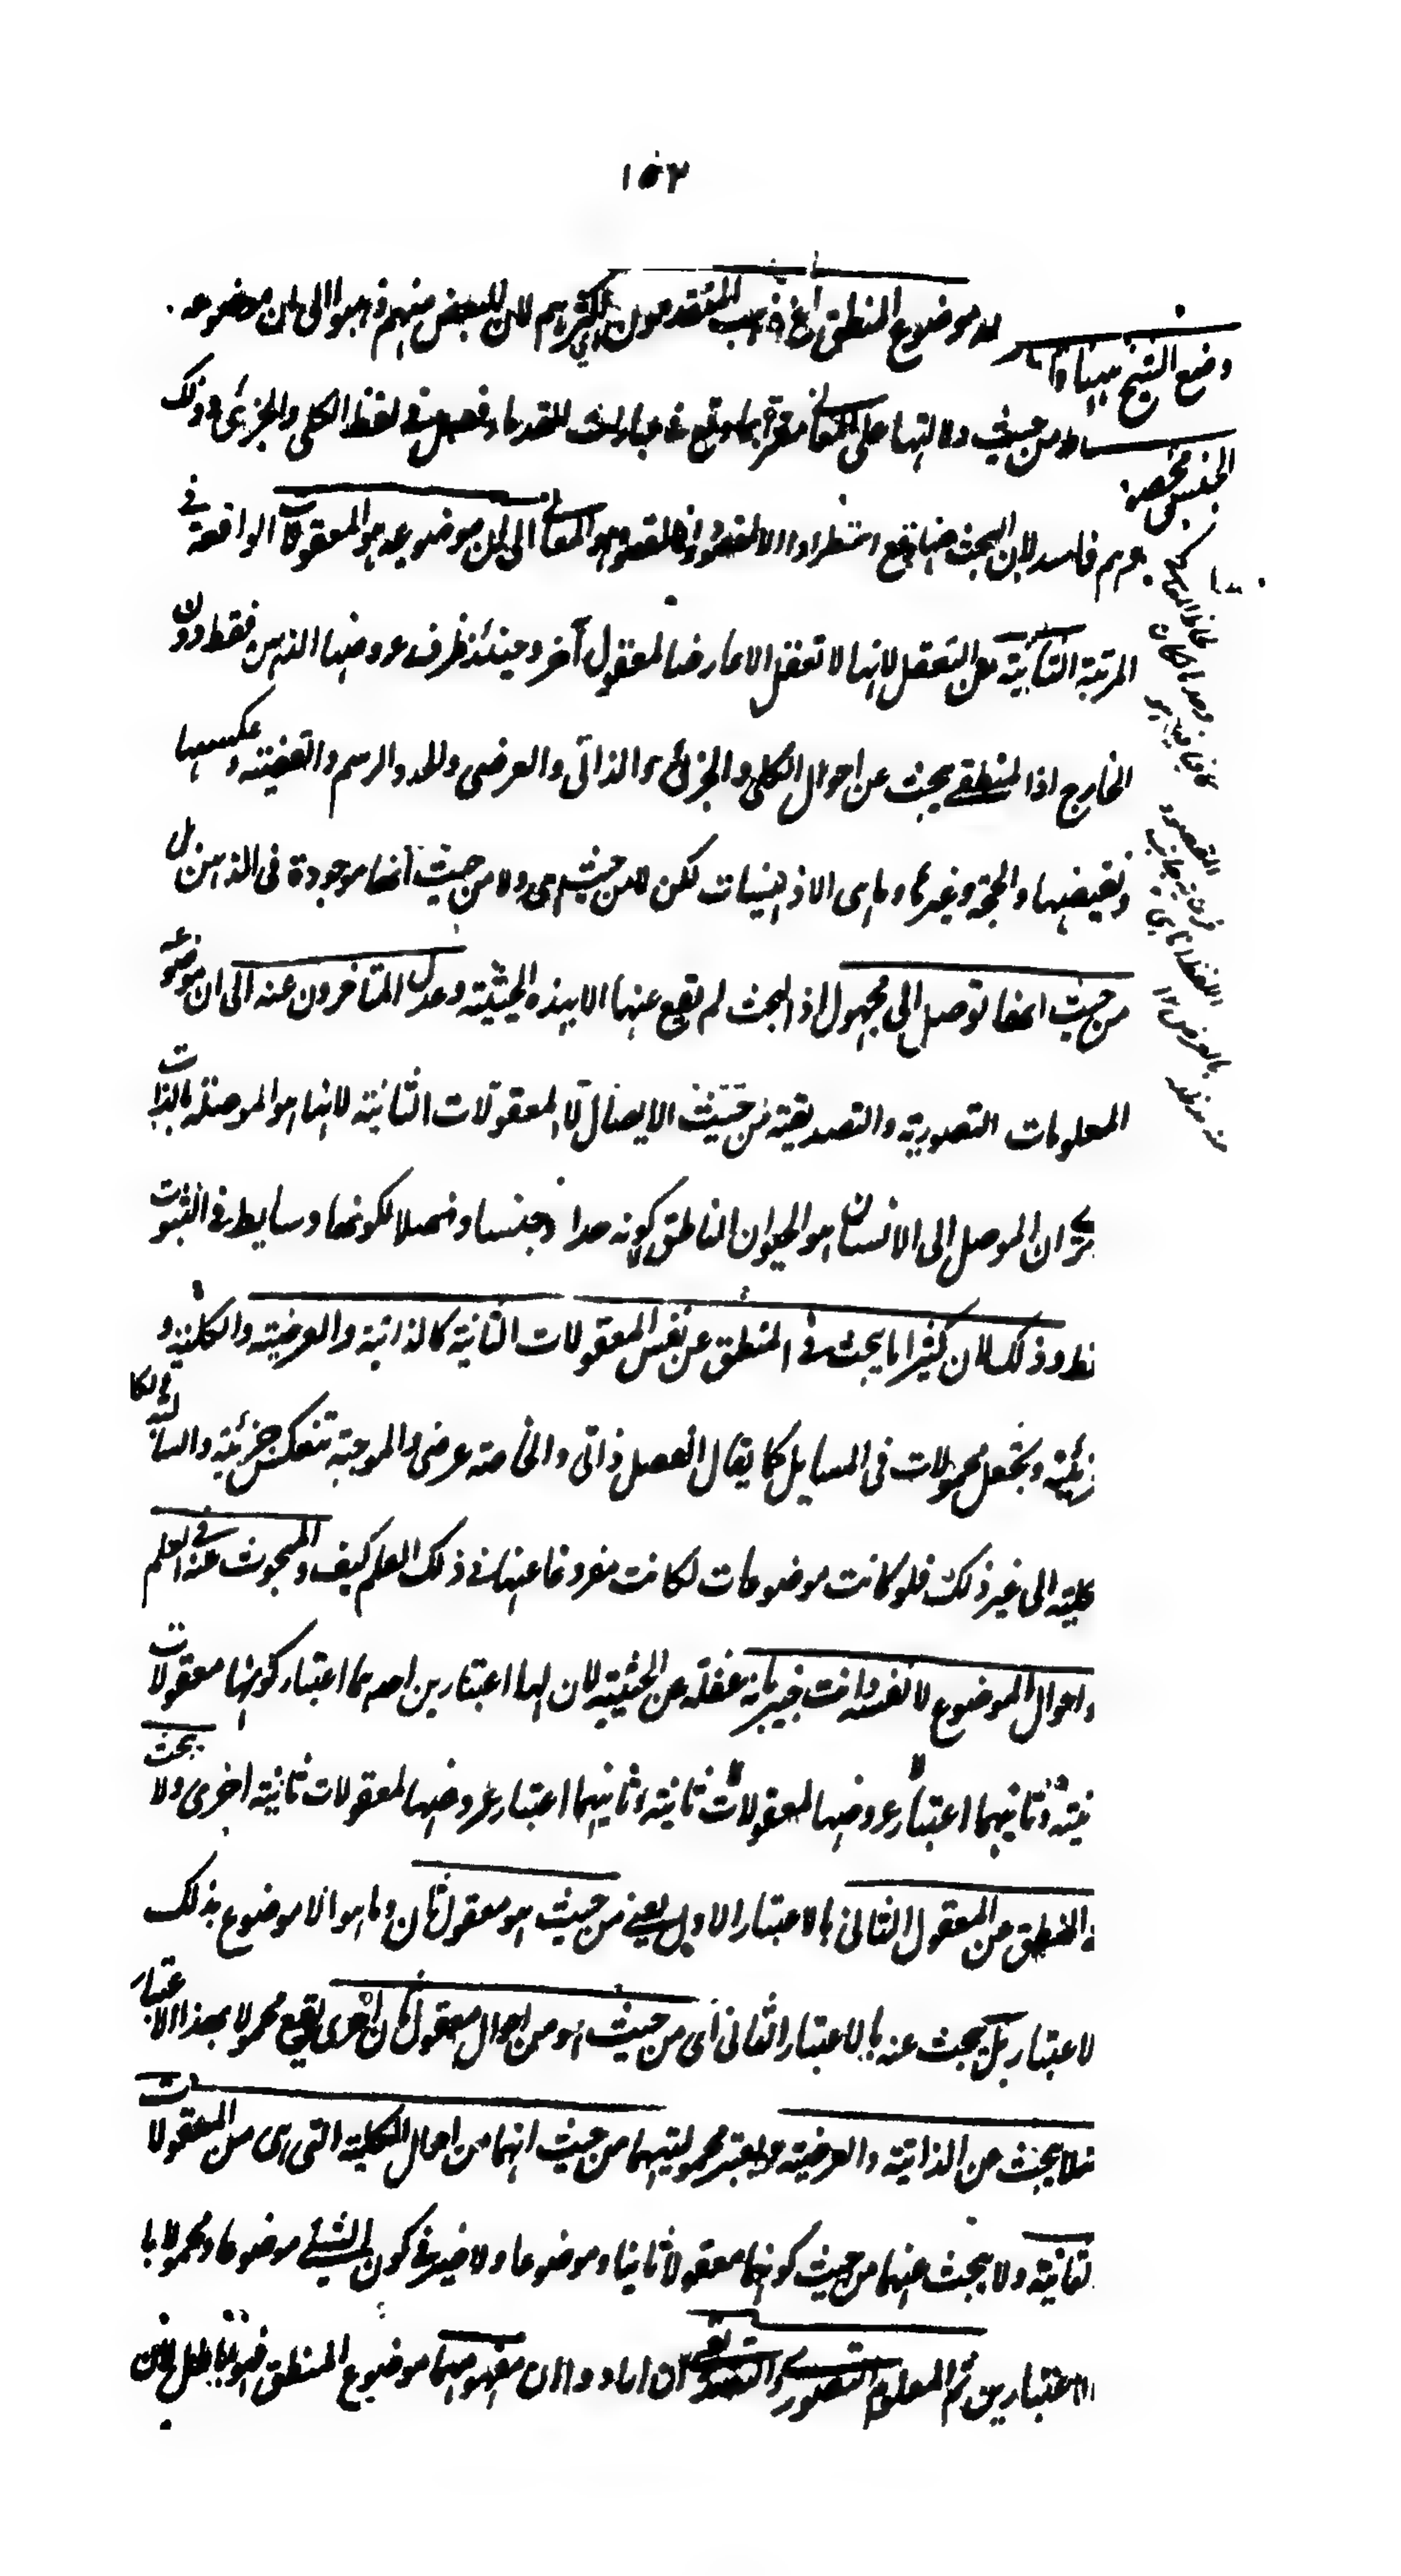 ١٥٢
موضوع المنطق الخ ذهب المتقدمون اي اكثرهم لان البعض منهم ذهبوا الى ان موضوعه
من حيث دلالتها على المعاني بما وقع في عبارات القدماء فصل في لفظ الكلي والجزئي وذلك
فاسد لان البحث عنها وقع استطرادا لا مقصودا المقصود هو المعاني الى ان موضوعه هو المعقولات الواقعة في
المرتبة الثانية من التعقل لانها لا تعقل الا عارضا لمعقول آخر وحينئذ ظرف عروضها الذهن فقط دون
الخارج اذ المنطقي يبحث عن احوال الكلي والجزئي والذاتي والعرضي والحد والرسم والقضية وعكسها
ونقيضها والحجة وغيرها وما هي الا ذهنيات لكن لا من حيث هي ولا من حيث انها موجودة في الذهن بل
من حيث انها توصل الى مجهول اذ البحث لم يقع عنها الا بهذه الحيثية وعدل المتاخرون عنه الى ان موضوعه
المعلومات التصورية والتصديقية من حيث الايصال لا المعقولات الثانية لانها هو الموصلة بالذات
ان الموصل الى الانسان هو الحيوان الناطق لا كونه حدا وجنسا وفصلا لكونها وسايط في الثبوت
فقط وذلك لان كثيرا ما يبحث في المنطق عن نفس المعقولات الثانية كالذاتية والعرضية والكلية و
الجزئية وتجعل محمولات في المسايل كما يقال الفصل ذاتي والخاصة عرضي والموجبة تنعكس جزئية والسالبة الكلية
كلية الى غير ذلك فلو كانت موضوعات لكانت مفروغا عنها في ذلك العلم كيف والمبحوث عنه في العلم
احوال الموضوع لا نفسه وانت خبير بانه غفلة عن الحيثية لان لها اعتبارين احدهما اعتبار كونها معقولات
ثانية وثانيهما اعتبار عروضها لمعقولات ثانية وثانيهما اعتبار عروضها لمعقولات ثانية اخرى ولا يبحث
المنطق عن المعقول الثاني بالاعتبار الاول يعني من حيث هو معقول ثان وما هو الا موضوع بذلك
الاعتبار بل يبحث عنه بالاعتبار الثاني اى من حيث هو من احوال معقول ثان اخرى يقع محمولا بهذا الاعتبار
فلا يبحث عن الذاتية والعرضية ويعتبر محموليتهما من حيث انهما من احوال الكلية التي هي من المعقولات
الثانية ولا يبحث عنهما من حيث كونهما معقولا ثانيا وموضوعا ولا ضير في كون الشيء موضوعا ومحمولا با
الاعتبارين ثم المعلوم التصوري والتصديقي ان ارادوا ان مفهومهما موضوع المنطق فهو باطل لان
وضع الشيخ